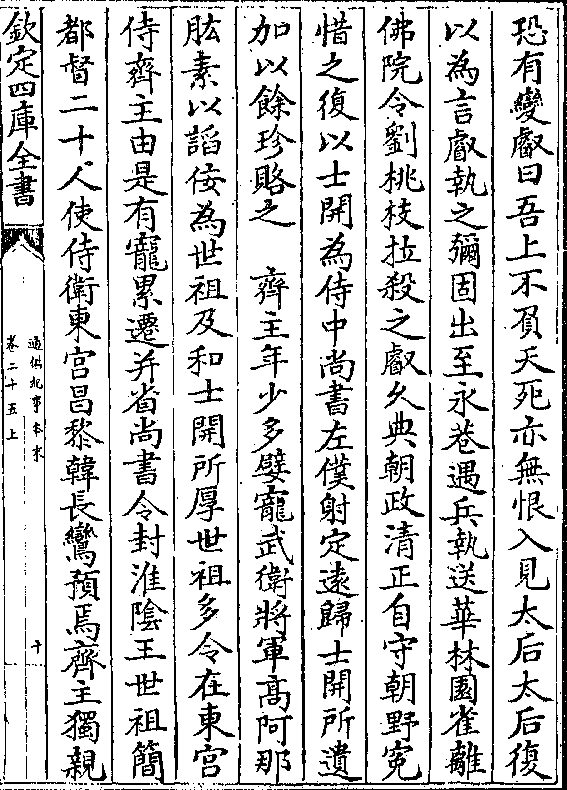 恐有變叡曰吾上不負天死亦無恨入見太后太后復
以為言叡執之彌固出至永巷遇兵執送華林園雀離
佛院令劉桃枝拉殺之叡乆典朝政清正自守朝野寃
惜之復以士開為侍中尚書左僕射定遠歸士開所遺
加以餘珍賂之　齊主年少多嬖寵武衛將軍高阿那
肱素以謟佞為世祖及和士開所厚世祖多令在東宮
侍齊主由是有寵累遷并省尚書令封淮陰王世祖簡
都督二十人使侍衛東宮昌黎韓長鸞預焉齊主獨親
欽定四庫全書
通鑑紀事本末
卷二十五上
十